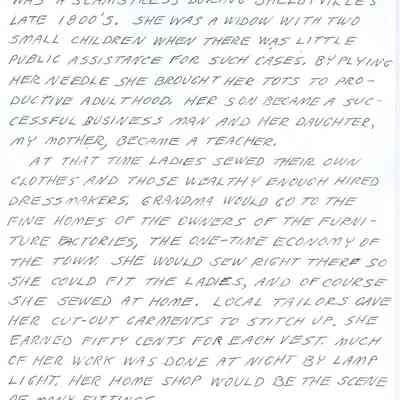 WAS A SEAMSTRESS DURING SHELBYVILLE'S
LATE 1800'S. SHE WAS A WIDOW WITH TWO
SMALL CHILDREN WHEN THERE WAS LITTLE
PUBLIC ASSISTANCE FOR SUCH CASES. BY PLYING
HER NEEDLE SHE BROUGHT HER TOTS TO PRO-
DUCTIVE ADULTHOOD. HER SON BECAME A SUC-
CESSFUL BUSINESS MAN AND HER DAUGHTER,
MY MOTHER, BECAME A TEACHER.
AT THAT TIME LADIES SEWED THEIR OWN
CLOTHES AND THOSE WEALTHY ENOUGH HIRED
DRESSMAKERS. GRANDMA WOULD GO TO THE
FINE HOMES OF THE OWNERS OF THE FURNI-
TURE FACTORIES, THE ONE-TIME ECONOMY OF
THE TOWN. SHE WOULD SEW RIGHT THERE SO
SHE COULD FIT THE LADIES, AND OF COURSE
SHE SEWED AT HOME. LOCAL TAILORS GAVE
HER CUT-OUT GARMENTS TO STITCH UP. SHE
EARNED FIFTY CENTS FOR EACH VEST. MUCH
OF HER WORK WAS DONE AT NIGHT BY LAMP
LIGHT. HER HOME SHOP WOULD BE THE SCENE
OF MANY FITTINGS